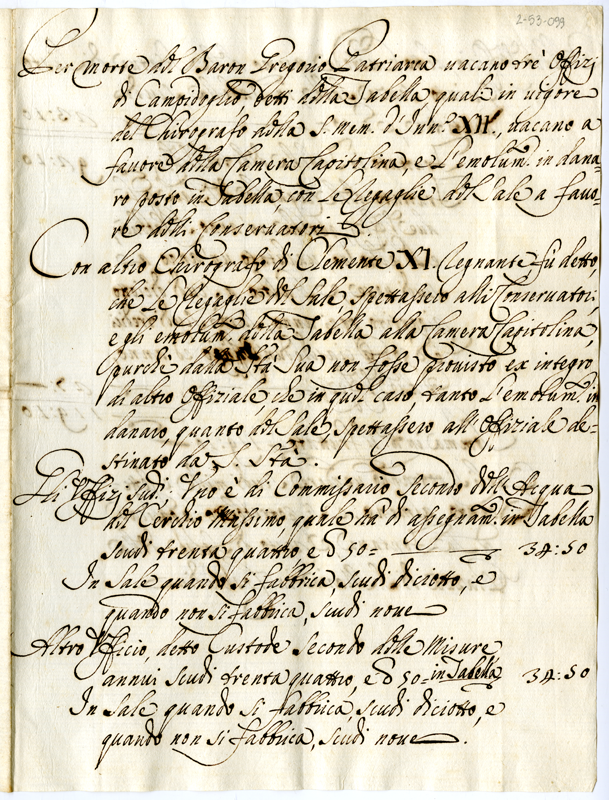 2-53-093
Per morte del Baron Gregorio Patriarca vacano trè Offizj
di Campidoglio detti della Tabella, quale in vigore
del Chirografo della S. mem. d'Inn.º XII., vacano a
favore della Camera Capitolina, e l'emolum. in dana=
ro posto in Tabella, con le Regaglie del Sale a favo=
re delli Conservatori.
Con altro Chirografo di Clemente XI. Regnante fù detto,
che le Regaglie del Sale spettassero alli Conservatori,
e gli emolum. della Tabella alla Camera Capitolina,
purchè dalla Stà Sua non fosse provisto ex integro
di altro Offiziale, che in quel caso tanto l'emolum. in
danaro, quanto del Sale, spettassero all'Offiziale de=
stinato da S. Stà.
Gli Uffizj sud. Uno è di Commissario Secondo dell'Acqua
del Cerchio Massimo, quale hà di assegnam. in Tabella
scudi trenta quattro e 50= 34:50
In Sale quando si fabbrica, scudi diciotto, e
quando non si fabbrica, scudi nove
Altro Ufficio, detto Custode Secondo delle Misure
annui scudi trenta quattro, e 50= in Tabella 34:50
In Sale quando si fabbrica, scudi diciotto, e
quando non si fabbrica, scudi nove.